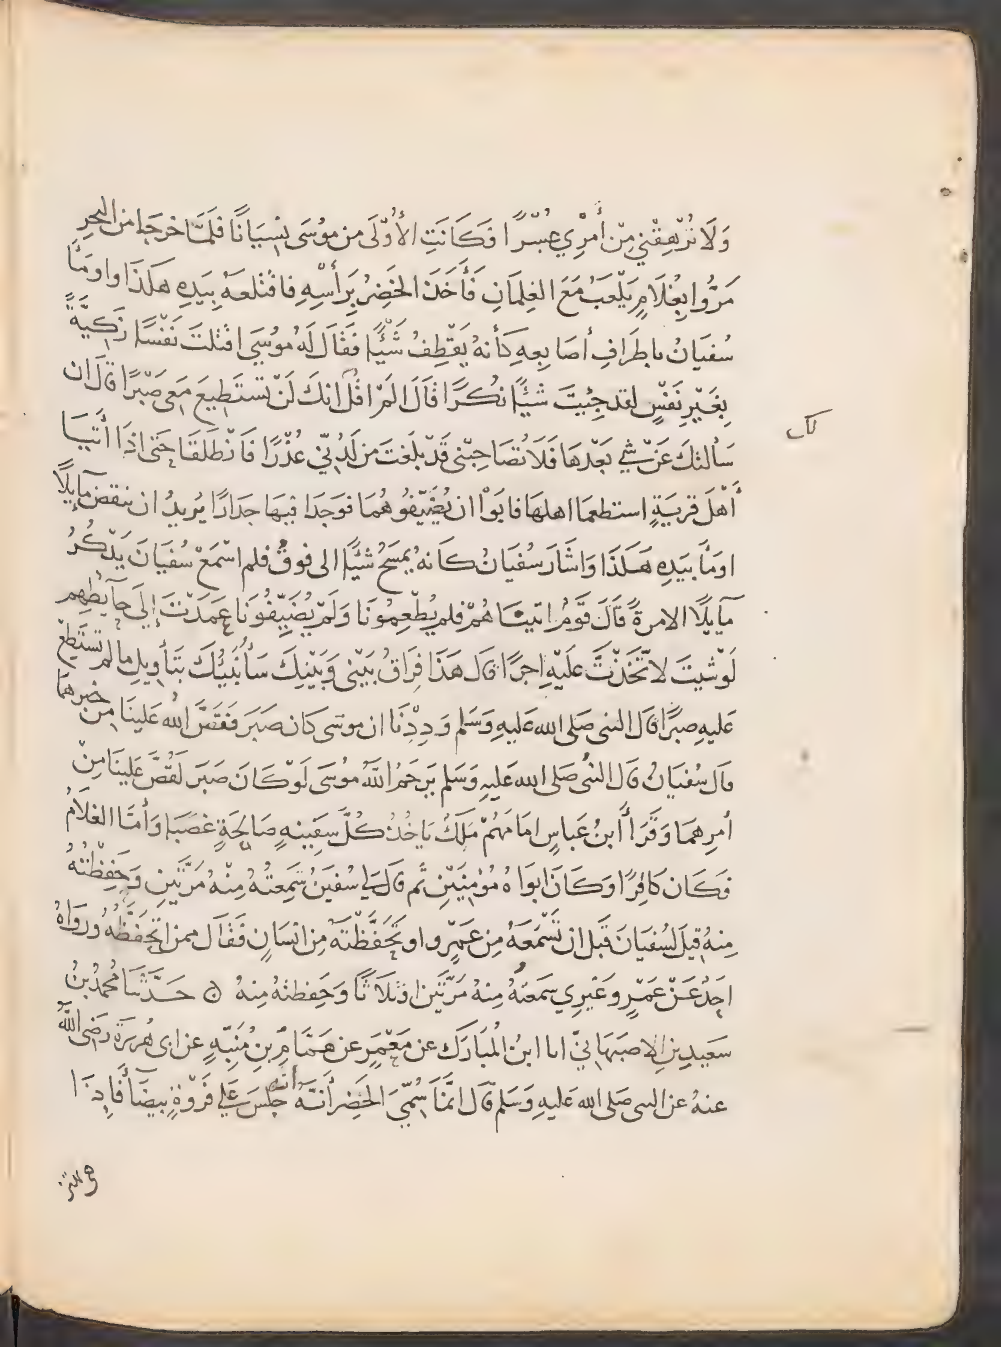 وَلَا تُرْهِقْنِي مِنْ أَمْرِي عُسْرًا فَكَانَتِ الأُوْلَى من مُوسَى نِسْيَانًا فَلَمَّا خرجَا من البَحرِ
مَرُّوا بِغُلَامٍ يَلْعَبُ مَعَ الغِلمَانِ فَأَخَذَ الخَضِرُ بِرَأْسِهِ فاقتلعهُ بِيَدِهِ هكَذَا واومَأَ
سُفيَانُ باطرَافِ أصَابِعِهِ كَأَنهُ يَقطِفُ شَيْئًا فَقَال لَهُ مُوسَى اقتلتَ نَفْسًا زَكِيَّةً
بِغَيْرِ نَفْسٍ لقد جِئتَ شَيْئًا نكْرًا قَالَ الَمْ اقُل انكَ لَنْ تستَطيعَ مَعى صَبْرًا قال ان
كك
سَألتكَ عَنْ شَيءٍ بَعْدَهَا فَلَا تُصَاحِبْنى قَدْ بلَغتَ من لَدُنِّي عُذْرًا فَانْطَلَقَا حَتى إذَا أتيَا
أَهْلَ قريَةٍ استطعمَا اهلهَا فابَوْا ان يُضَيِّفُوهُمَا فوَجَدَا فيهَا جدَارًا يُريدُ ان ينقض مَآيِلًا
اومَأَ بيَدِهِ هَكَذَا وَاشَارَ سُفيَانُ كَانهُ يَمسَحُ شيْئًا الى فوقُ فلم اسْمَعْ سُفيَانَ يَذْكُرُ
مآيِلًا الا مرةً قَالَ قَوْمٌ اتينَاهُمْ فلم يُطْعِمُونَا وَلَمْ يُضَيِّفُونَا عَمَدْتَ إلَى حآيِطِهِم
لَوْ شِيتَ لاتّخَذْتَ عَلَيْهِ اجرًا قَال هَذَا فِرَاقُ بَيْنى وَبَيْنِكَ سَأُنَبِّئُكَ بتَأويلِ ما لم تستَطِعْ
عَليهِ صبرًا قال النبى صَلى الله عَليهِ وَسَلم وَدِدْنَا ان موسَى كان صَبَرَ فَقَصَّ اللهُ عَلينَا مِن خبرهمَا
قال سُفيَانُ قال النبيُ صَلى الله عَليهِ وَسَلم يَرحَمُ اللهُ مُوسَى لَوْ كَانَ صَبَرَ لَقُصَّ عَلينَا مِنْ
أمرِهمَا وَقَرَأَ أبنُ عَبَاسٍ امَامَهُمْ مَلِكٌ يَاخُذُ كُلَّ سَفِينهٍ صَالحَةٍ غصبَا وَأمَّا الغلَامُ
فكَان كافِرًا وَكَانَ ابوَاهُ مُؤمِنَيْنِ ثم قال لي سُفيَنُ سَمِعتُهُ مِنْهُ مَرَّتَينِ وَحَفِظْتُهُ
مِنهُ قِيلَ لسُفيَانَ قَبلَ ان تَسْمَعَهُ مِن عَمرٍو او تَحَفَّظْتَهُ مِن انسَانٍ فَقَال ممن اتحفَّظُهُ ورَوَاهُ
احَدٌ عَنْ عَمْرٍو غَيْرِي سَمعتُهُ مِنهُ مَرَّتَينِ او ثلَاثًا وَحَفِظتهُ مِنهُ ۞ حَدَّثنَا محمدُ بنُ
سَعيدِ بنِ الاصبَهَانِيِّ انا ابنُ المُبَارَك عن مَعْمَرٍ عن هَمَّامِ بنِ مُنَبِّهٍ عن ابى هُريرَةَ رضى اللهُ
عنهُ عن النبى صَلى الله عَليهِ وَسَلم قَال انَّمَا سُمِّيَ الخَضِرَ أَنَّهُ جلَسَ عَلى فَرْوَةٍ بيضَآ فَإِذَا
هى تهتز